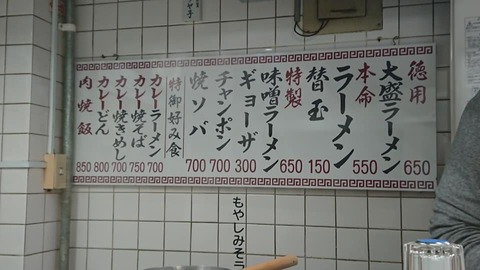 徳用
大盛ラーメン 650
本命
ラーメン 550
替玉 150
特製
味噌ラーメン 650
ギョーザ 300
チャンポン 700
焼ソバ 700
特御好み食
カレーラーメン 700
カレー焼そば 750
カレー焼きめし 700
カレーどん 800
肉焼飯 850
もやしみそラ